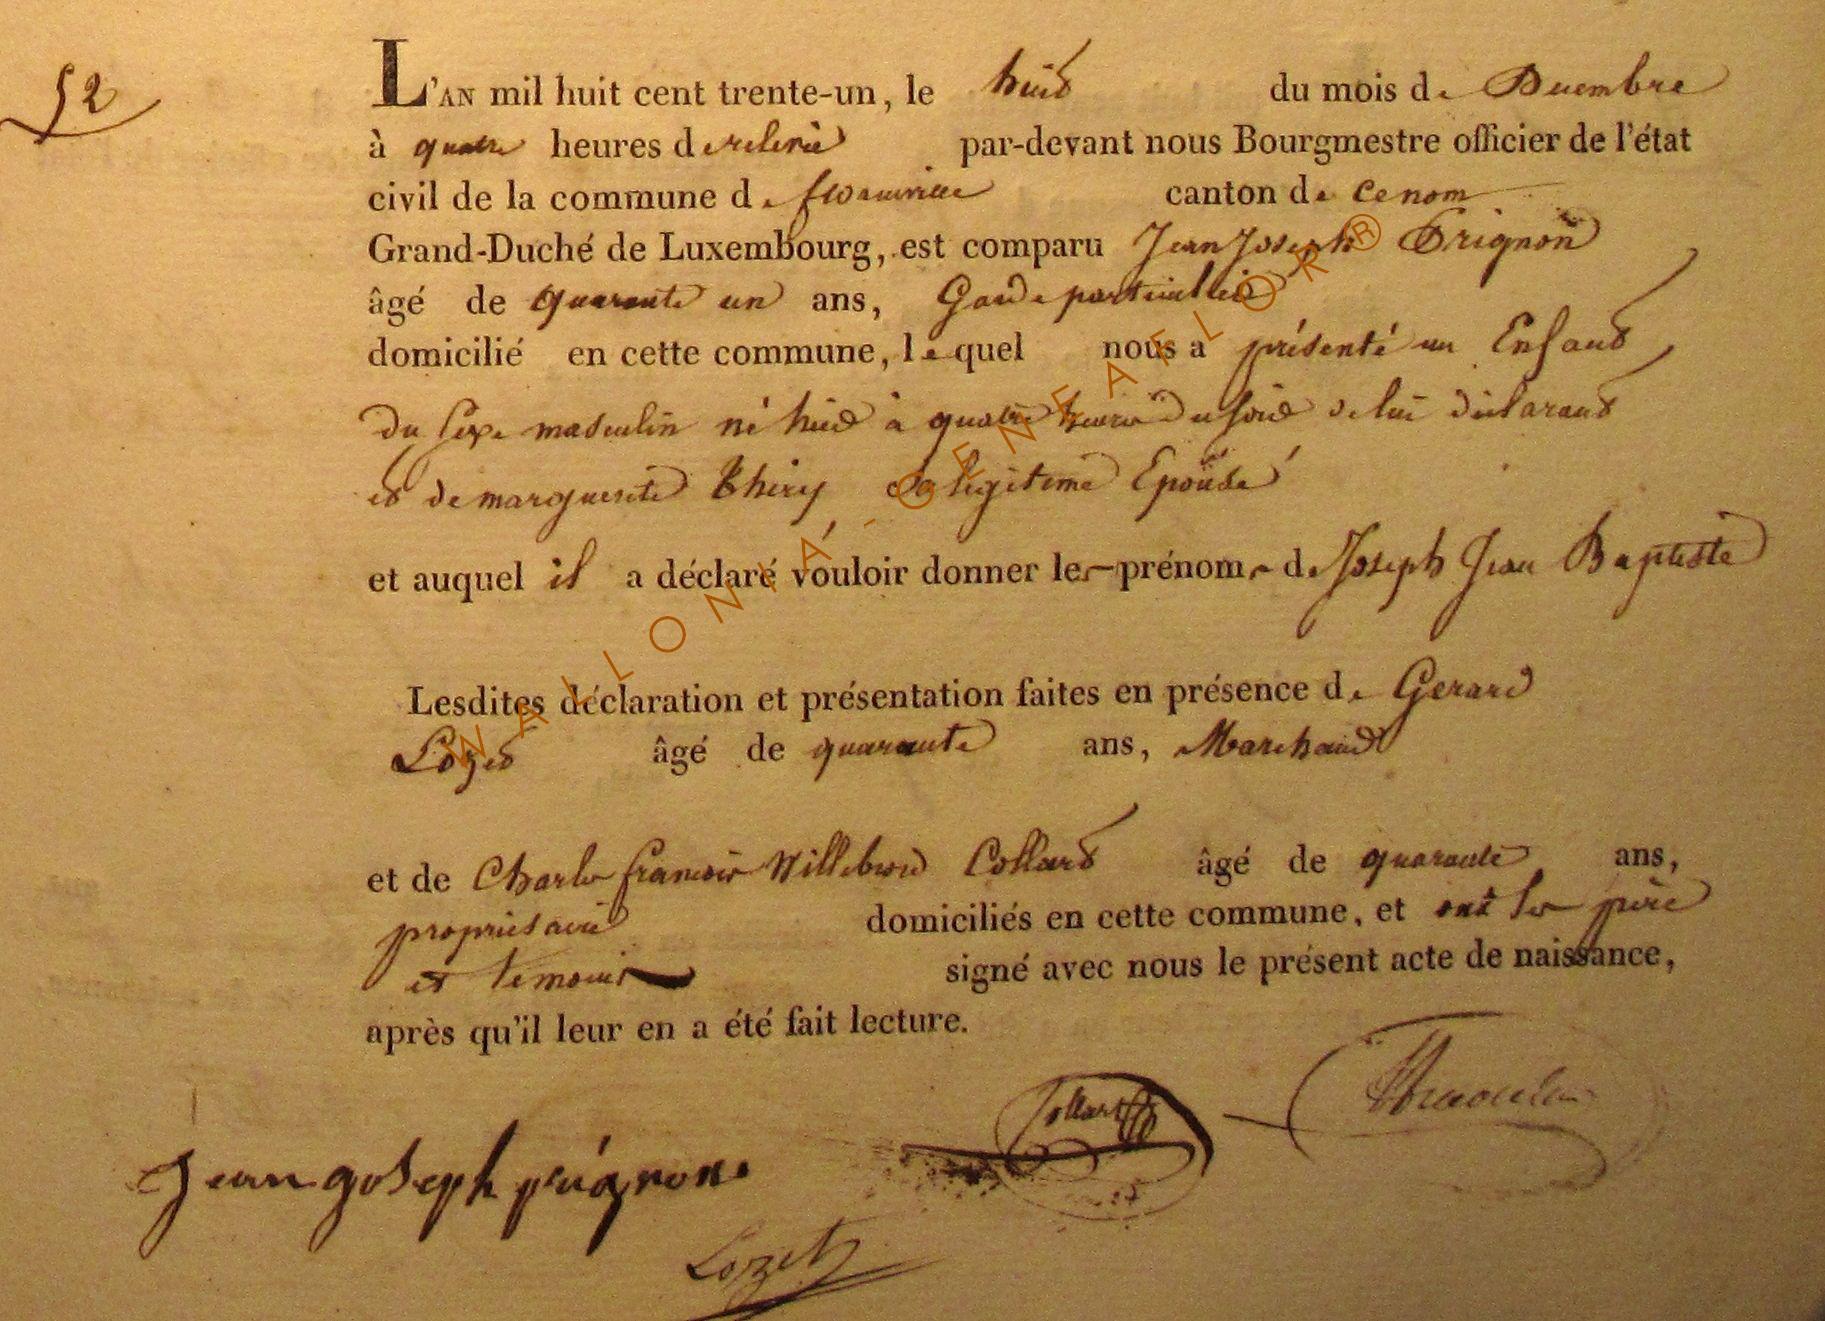 52
L'AN mil huit cent trente-un, le huit du mois de Decembre
à quatre heures de relevée par-devant nous Bourgmestre officier de l'état
civil de la commune de florenville canton de ce nom
Grand-Duché de Luxembourg, est comparu Jean Joseph Prignon
âgé de quarante un ans, Garde particulier
domicilié en cette commune, lequel nous a présenté un Enfant
du sexe masculin né à quatre heures du soir de lui déclarant
et de marguerite Thiry sa légitime Epouse
et auquel il a déclaré vouloir donner les prénoms de Joseph Jean Baptiste
Lesdites déclaration et présentation faites en présence de Gerard
Lozet âgé de quarante ans, Marchand
et de Charles françois Willebrord Collard âgé de quarante ans,
propriétaire domiciliés en cette commune, et ont les père
et temoins signé avec nous le présent acte de naissance,
après qu'il leur en a été fait lecture.
Collard
Jean goseph prignon
Lozet
WALLONIA-GENEAFLOR®